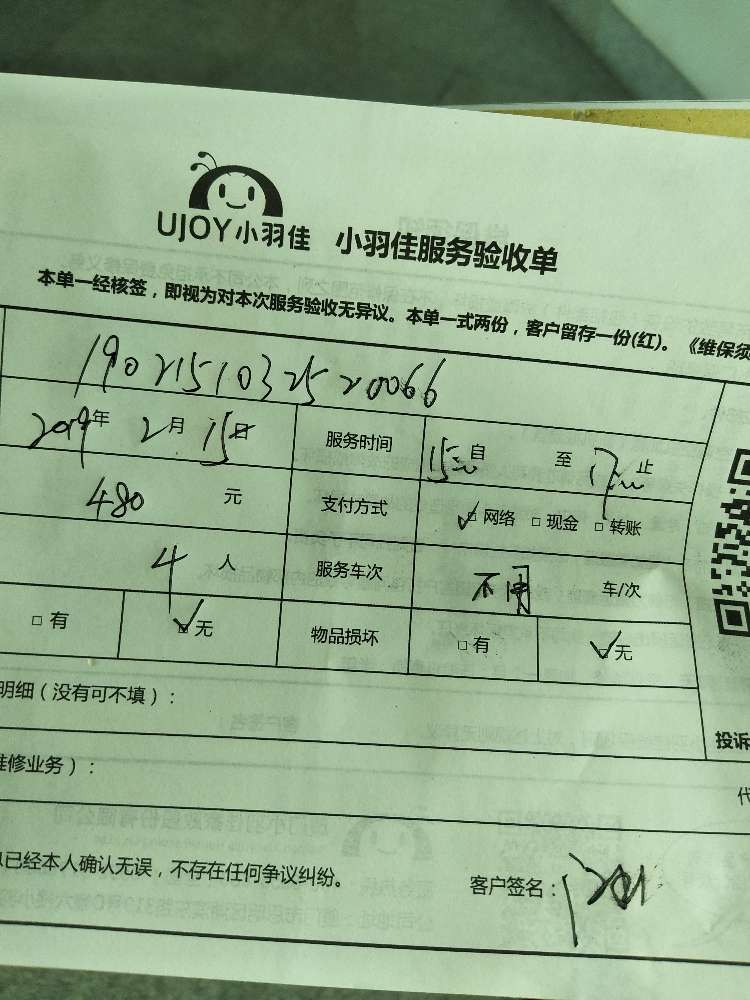 UJOY小羽佳 小羽佳服务验收单
本单一经核签，即视为对本次服务验收无异议。本单一式两份，客户留存一份(红)。《维保须
1902151032520066
2019年 2月 15日 服务时间 15:00 自 至 17:00 止
480 元 支付方式 ✓□网络 □现金 □转账
4 人 服务车次 车/次
□有 ☑无 物品损坏 □有 ☑无
明细（没有可不填）：
投诉
维修业务）：
代
以已经本人确认无误，不存在任何争议纠纷。 客户签名：